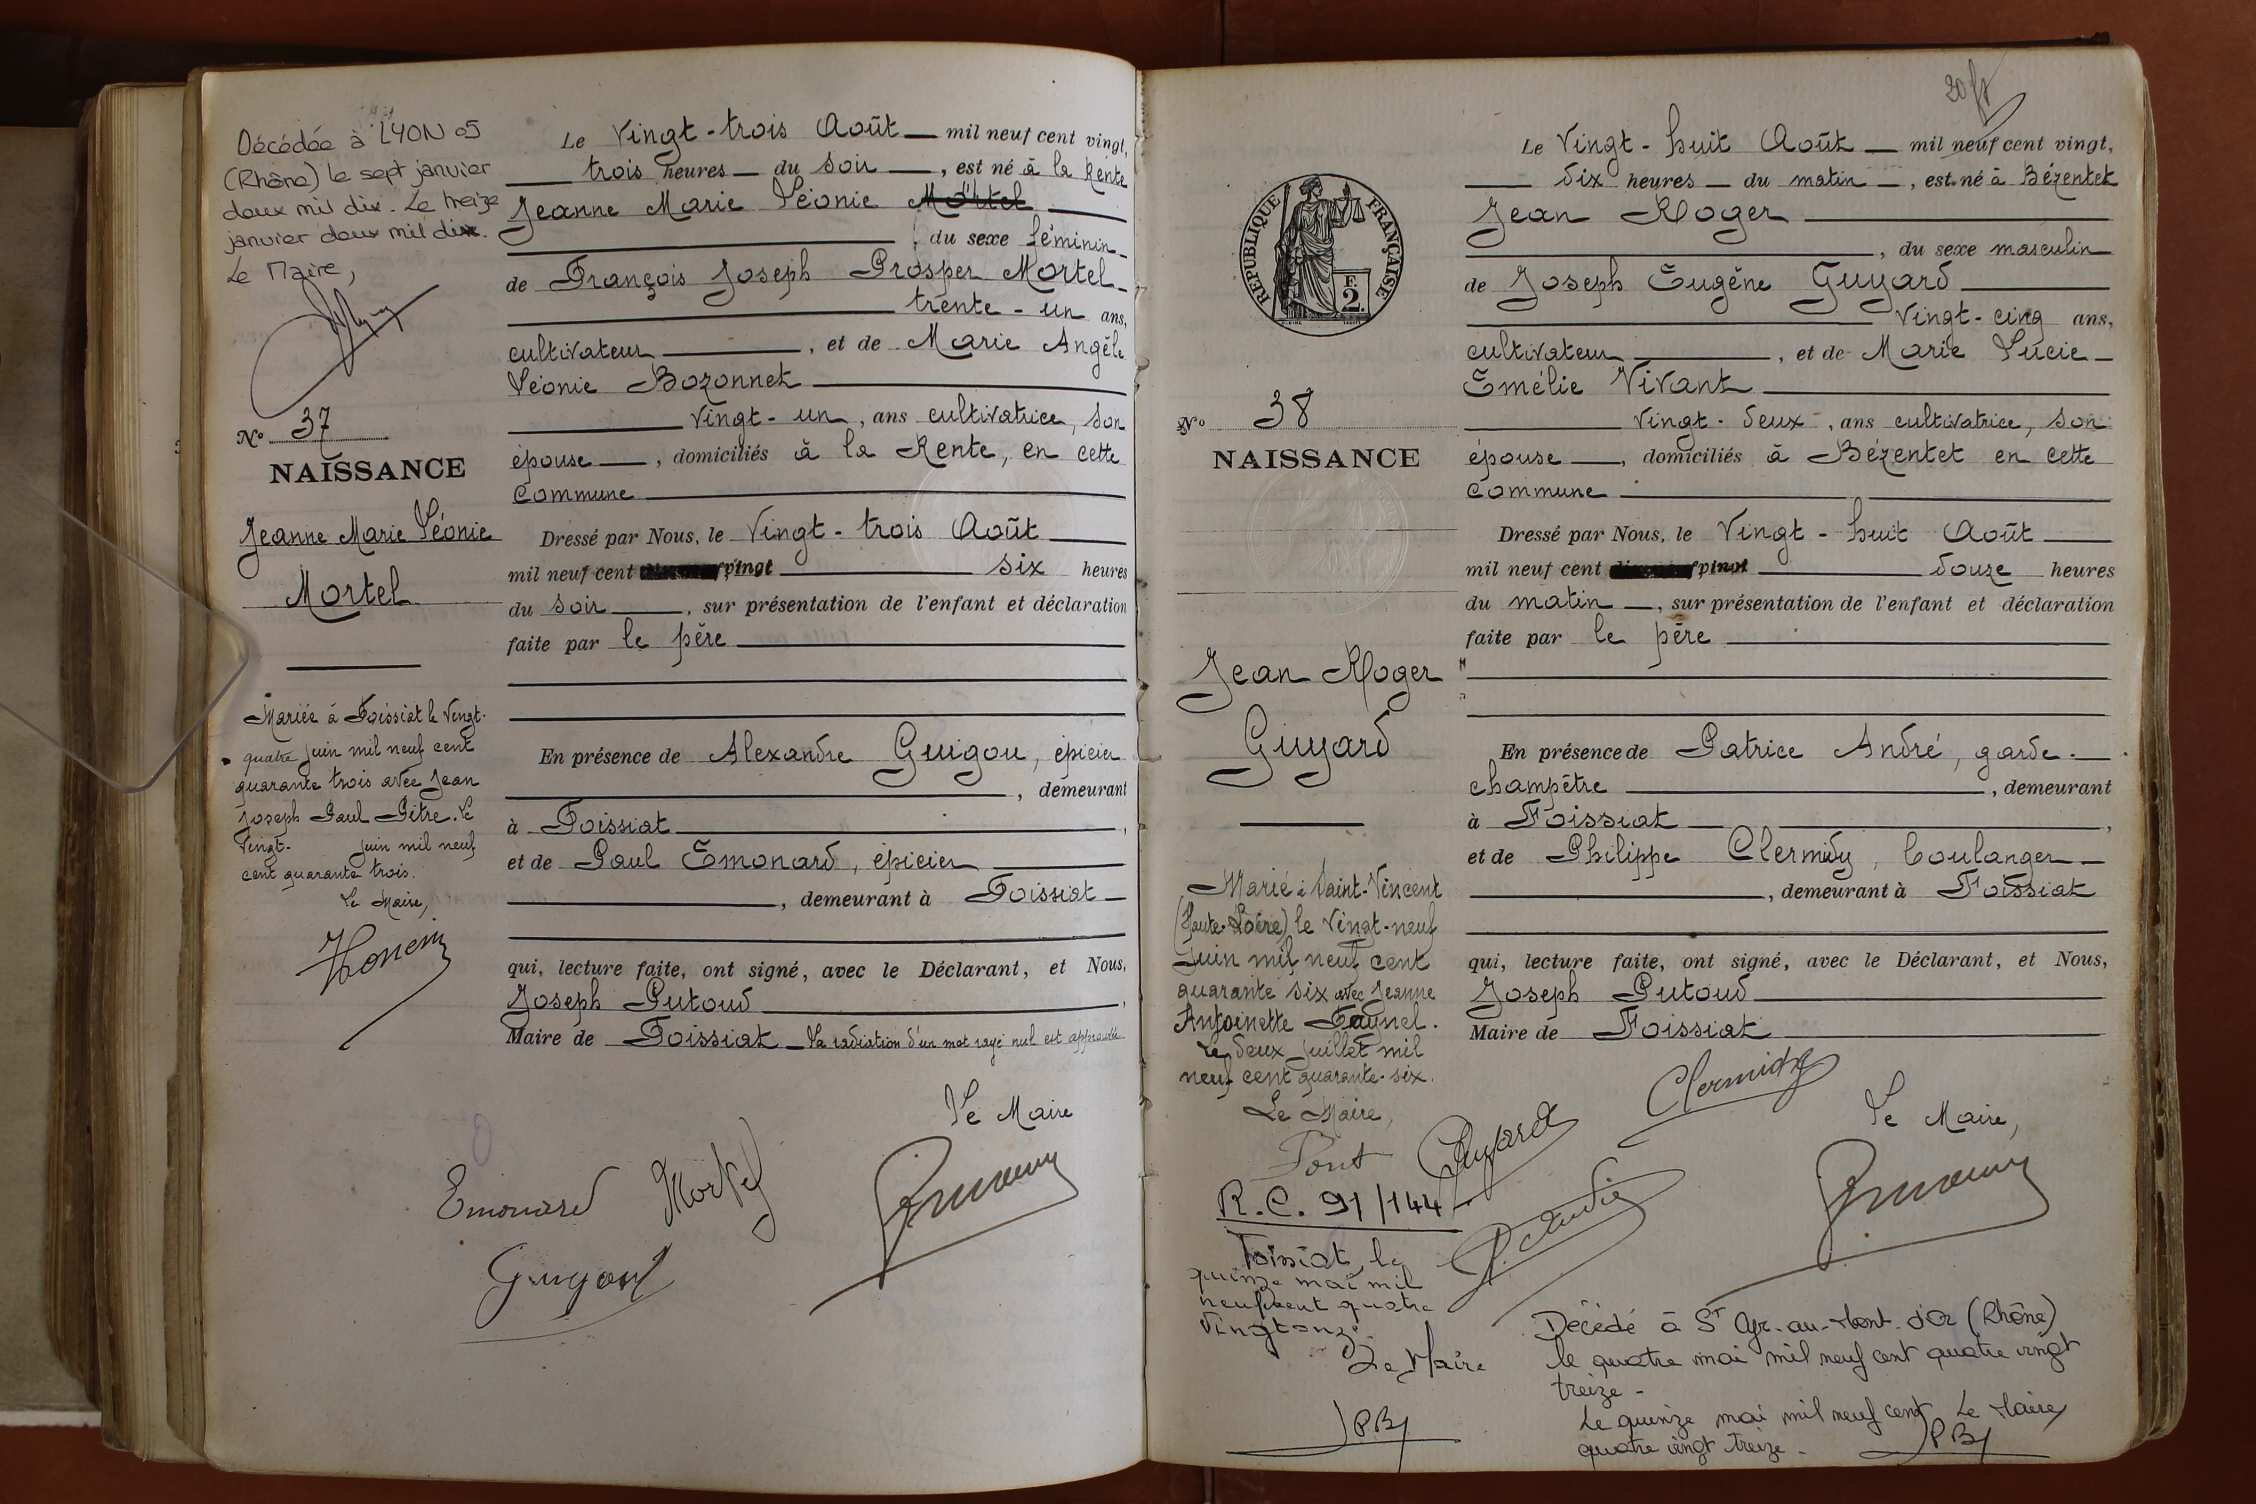 Décédée à LYON 05
(Rhône) le sept janvier
deux mil dix. Le treize
janvier deux mil dix.
Le Maire,
No 37
NAISSANCE
Jeanne Marie Léonie
Mortel
Mariée à Foissiat le vingt-
quatre juin mil neuf cent
quarante trois avec Jean
Joseph Paul Pitre. Le
vingt- juin mil neuf
cent quarante trois.
Le Maire,
Le Vingt-trois Août mil neuf cent vingt,
trois heures du soir, est né à la Rente
Jeanne Marie Léonie Mortel
, du sexe féminin
de François Joseph Prosper Mortel
trente-un ans,
cultivateur, et de Marie Angèle
Léonie Bozonnet
vingt-un, ans cultivatrice, son
épouse, domiciliés à la Rente, en cette
commune
Dressé par Nous, le Vingt-trois Août
mil neuf cent vingt six heures
du soir, sur présentation de l'enfant et déclaration
faite par le père
En présence de Alexandre Guigou, épicier
, demeurant
à Foissiat,
et de Paul Emonard, épicier
, demeurant à Foissiat
qui, lecture faite, ont signé, avec le Déclarant, et Nous,
Joseph Putoud,
Maire de Foissiat La radiation d'un mot rayé nul est approuvée
Le Maire
Emonard Mortel
20 fs
REPUBLIQUE FRANÇAISE
F.
2
No 38
NAISSANCE
Jean Roger
Guyard
Marié à Saint-Vincent
(Haute-Loire) le vingt-neuf
juin mil neuf cent
quarante six avec Jeanne
Antoinette Faynel.
Le deux juillet mil
neuf cent quarante-six.
Le Maire,
Pont
R.C. 91/144
Foissiat, le
quinze mai mil
neuf cent quatre
vingt onze.
Le Maire
PB
Le Vingt-huit Août mil neuf cent vingt,
dix heures du matin, est né à Bézentet
Jean Roger
, du sexe masculin
de Joseph Eugène Guyard
vingt-cinq ans,
cultivateur, et de Marie Lucie
Emélie Vivant
vingt-deux, ans cultivatrice, son
épouse, domiciliés à Bézentet en cette
commune
Dressé par Nous, le Vingt-huit Août
mil neuf cent vingt douze heures
du matin, sur présentation de l'enfant et déclaration
faite par le père
En présence de Patrice André, garde-
champêtre, demeurant
à Foissiat,
et de Philippe Clermidy, boulanger
, demeurant à Foissiat
qui, lecture faite, ont signé, avec le Déclarant, et Nous,
Joseph Putoud
Maire de Foissiat
Clermidy
Guyard
Le Maire,
Décédé à St Cyr-au-Mont-d'Or (Rhône)
le quatre mai mil neuf cent quatre vingt
treize -
Le quinze mai mil neuf cent Le Maire
quatre vingt treize - PB